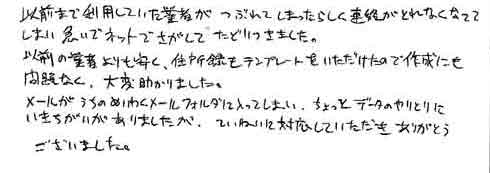 以前まで利用していた業者が つぶれてしまったらしく連絡がとれなくなてて
しまい 急いでネットでさがして たどりつきました。
以前の業者よりも安く、住所録もテンプレートをいただけたので作成にも
問題なく、大変助かりました。
メールがうちのめいわくメールフォルダに入ってしまい、ちょっとデータのやりとりに
いきちがいがありましたが、ていねいに対応していただき ありがとう
ございました。